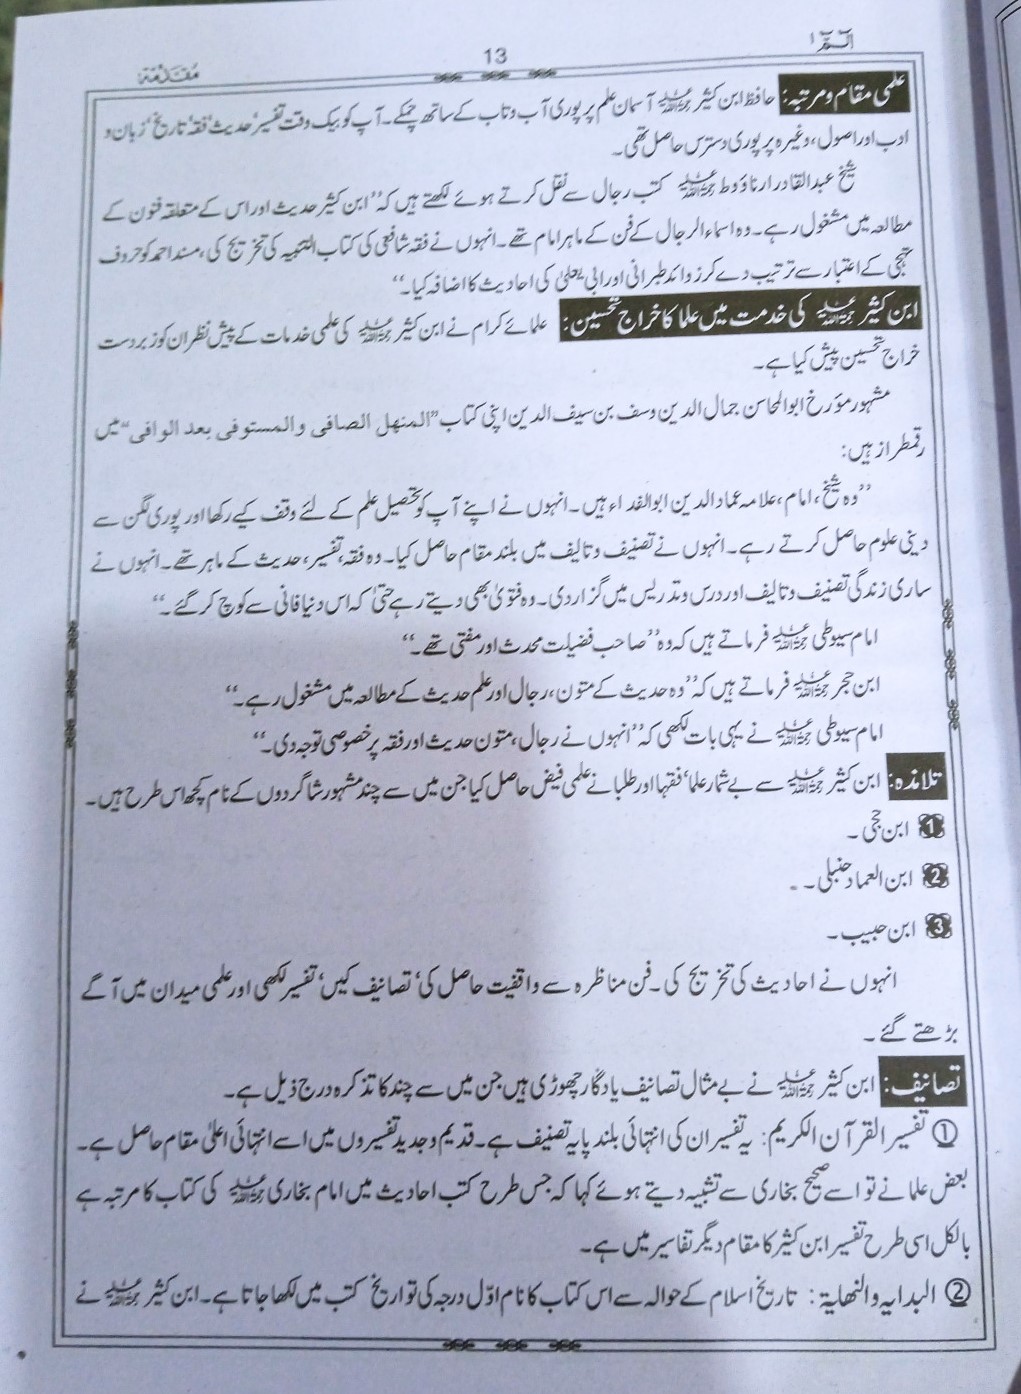 الٓمّٓ ۱
13
مُقَدِّمَة
علمی مقام و مرتبہ: حافظ ابن کثیر رحمۃ اللہ علیہ آسمان علم پر پوری آب و تاب کے ساتھ چمکے۔ آپ کو بیک وقت تفسیر، حدیث، فقہ، تاریخ، زبان و
ادب اور اصول، وغیرہ پر پوری دسترس حاصل تھی۔
شیخ عبدالقادر ارناؤوط رحمۃ اللہ علیہ کتب رجال سے نقل کرتے ہوئے لکھتے ہیں کہ ’’ابن کثیر حدیث اور اس کے متعلقہ فنون کے
مطالعہ میں مشغول رہے۔ وہ اسماء الرجال کے فن کے ماہر امام تھے۔ انہوں نے فقہ شافعی کی کتاب التنبیہ کی تخریج کی، مسند احمد کو حروف
تہجی کے اعتبار سے ترتیب دے کر زوائد طبرانی اور ابی یعلیٰ کی احادیث کا اضافہ کیا۔‘‘
ابن کثیر رحمۃ اللہ علیہ کی خدمت میں علما کا خراج تحسین: علمائے کرام نے ابن کثیر رحمۃ اللہ علیہ کی علمی خدمات کے پیش نظر ان کو زبردست
خراج تحسین پیش کیا ہے۔
مشہور مؤرخ ابوالمحاسن جمال الدین وسف بن سیف الدین اپنی کتاب ’’المنهل الصافی والمستوفی بعد الوافی‘‘ میں
رقمطراز ہیں:
’’وہ شیخ، امام، علامہ عماد الدین ابوالفداء ہیں۔ انہوں نے اپنے آپ کو تحصیل علم کے لئے وقف کیے رکھا اور پوری لگن سے
دینی علوم حاصل کرتے رہے۔ انہوں نے تصنیف و تالیف میں بلند مقام حاصل کیا۔ وہ فقہ، تفسیر، حدیث کے ماہر تھے۔ انہوں نے
ساری زندگی تصنیف و تالیف اور درس و تدریس میں گزار دی۔ وہ فتویٰ بھی دیتے رہے حتیٰ کہ اس دنیا فانی سے کوچ کر گئے۔‘‘
امام سیوطی رحمۃ اللہ علیہ فرماتے ہیں کہ وہ ’’صاحب فضیلت محدث اور مفتی تھے۔‘‘
ابن حجر رحمۃ اللہ علیہ فرماتے ہیں کہ ’’وہ حدیث کے متون، رجال اور علم حدیث کے مطالعہ میں مشغول رہے۔‘‘
امام سیوطی رحمۃ اللہ علیہ نے یہی بات لکھی کہ ’’انہوں نے رجال، متون حدیث اور فقہ پر خصوصی توجہ دی۔‘‘
تلامذہ: ابن کثیر رحمۃ اللہ علیہ سے بے شمار علما، فقہا اور طلبا نے علمی فیض حاصل کیا جن میں سے چند مشہور شاگردوں کے نام کچھ اس طرح ہیں۔
1 ابن حجی۔
2 ابن العماد حنبلی۔
3 ابن حبیب۔
انہوں نے احادیث کی تخریج کی۔ فن مناظرہ سے واقفیت حاصل کی، تصانیف کیں، تفسیر لکھی اور علمی میدان میں آگے
بڑھتے گئے۔
تصانیف: ابن کثیر رحمۃ اللہ علیہ نے بے مثال تصانیف یادگار چھوڑی ہیں جن میں سے چند کا تذکرہ درج ذیل ہے۔
① تفسیر القرآن الکریم: یہ تفسیر ان کی انتہائی بلند پایہ تصنیف ہے۔ قدیم و جدید تفسیروں میں اسے انتہائی اعلیٰ مقام حاصل ہے۔
بعض علما نے تو اسے صحیح بخاری سے تشبیہ دیتے ہوئے کہا کہ جس طرح کتب احادیث میں امام بخاری رحمۃ اللہ علیہ کی کتاب کا مرتبہ ہے
بالکل اسی طرح تفسیر ابن کثیر کا مقام دیگر تفاسیر میں ہے۔
② البدایہ والنھایۃ: تاریخ اسلام کے حوالہ سے اس کتاب کا نام اوّل درجہ کی تواریخ کتب میں لکھا جاتا ہے۔ ابن کثیر رحمۃ اللہ علیہ نے